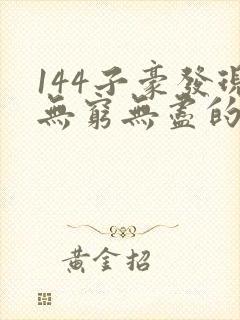 144子豪發現
無窮無盡的
黃金招